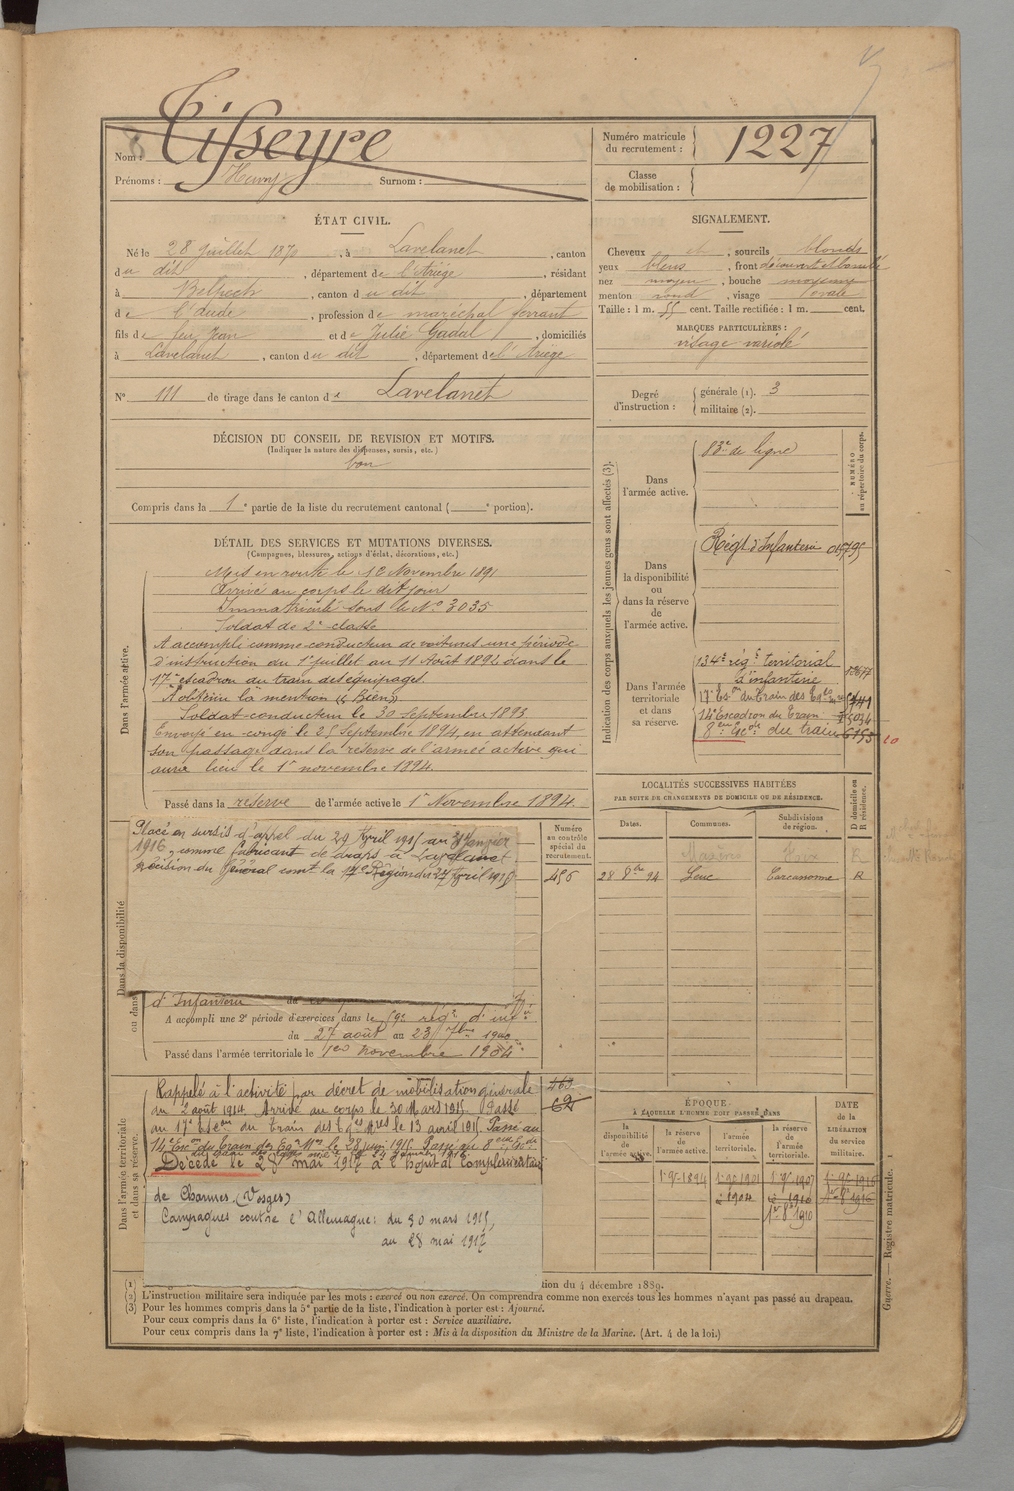 Nom : Tisseyre
Prénoms : Henry Surnom :
Numéro matricule du recrutement : 1227
Classe de mobilisation :
ÉTAT CIVIL.
Né le 28 juillet 1870, à Lavelanet, canton
du dit, département de l'Ariège, résidant
à Belpech, canton du dit, département
de l'Aude, profession de maréchal ferrant
fils de feu Jean et de Julie Gadal, domiciliés
à Lavelanet, canton du dit, département de l'Ariège
N° 111 de tirage dans le canton de Lavelanet
SIGNALEMENT.
Cheveux ch, sourcils blonds
yeux bleus, front découvert et bombé
nez moyen, bouche moyenne
menton rond, visage ovale
Taille : 1 m. 55 cent. Taille rectifiée : 1 m. cent.
MARQUES PARTICULIÈRES :
visage variolé
Degré d'instruction : générale (1). 3
militaire (2).
DÉCISION DU CONSEIL DE REVISION ET MOTIFS.
(Indiquer la nature des dispenses, sursis, etc.)
bon
Compris dans la 1e partie de la liste du recrutement cantonal ( e portion).
DÉTAIL DES SERVICES ET MUTATIONS DIVERSES.
(Campagnes, blessures, actions d'éclat, décorations, etc.)
Dans l'armée active.
Mis en route le 12 Novembre 1891
Arrivé au corps le dit jour
Immatriculé sous le N° 3035
Soldat de 2e classe
A accompli comme conducteur de voitures une période
d'instruction du 1er juillet au 11 Août 1892 dans le
17e escadron du train des équipages.
A obtenu la mention (Bien)
Soldat conducteur le 30 Septembre 1893
Envoyé en congé le 25 Septembre 1894, en attendant
son passage dans la réserve de l'armée active qui
aura lieu le 1er novembre 1894.
Passé dans la réserve de l'armée active le 1er Novembre 1894.
Indication des corps auxquels les jeunes gens sont affectés (3).
NUMÉRO au répertoire du corps.
Dans l'armée active.
83e de ligne
Dans la disponibilité ou dans la réserve de l'armée active.
Régt d'Infanterie
Dans l'armée territoriale et dans sa réserve.
134e régt territorial
d'infanterie
17e Eson du Train des Eq.
14e Escadron du Train 5034
8eme Escon du train
LOCALITÉS SUCCESSIVES HABITÉES
PAR SUITE DE CHANGEMENTS DE DOMICILE OU DE RÉSIDENCE.
Dates. Communes. Subdivisions de région. D domicile ou R résidence.
Foix R
28 8bre 94 Leuc Carcassonne R
Numéro au contrôle spécial du recrutement.
456
Dans la disponibilité
ou dans
Placé en sursis d'appel du 29 Avril 1915 au 31 Janvier
1916, comme fabricant de draps à Lavelanet
décision du Général comt la 17e Région du 27 Avril 1915
d'Infanterie du
A accompli une 2e période d'exercices dans le régt d'infie
du 27 août au 23 7bre 1900
Passé dans l'armée territoriale le 1er novembre 1904
Dans l'armée territoriale et dans sa réserve.
Rappelé à l'activité par décret de mobilisation générale
du 2 août 1914. Arrivé au corps le 30 Mars 1915. Passé
au 17e Escon du Train des Eqges Mres le 13 avril 1915. Passé au
14e Escon du Train des Eq. Mres le 28 juin 1915. Passé au 8eme Escon
Décédé le 28 mai 1917 à l'hôpital complémentaire
de Charmes (Vosges)
Campagnes contre l'Allemagne: du 30 mars 1915,
au 28 mai 1917
ÉPOQUE
À LAQUELLE L'HOMME DOIT PASSER DANS
la disponibilité de l'armée active. la réserve de l'armée active. l'armée territoriale. la réserve de l'armée territoriale.
DATE de la LIBÉRATION du service militaire.
1er 9bre 1894
1904
1910
Guerre. — Registre matricule. 1
(1) tion du 4 décembre 1889.
(2) L'instruction militaire sera indiquée par les mots : exercé ou non exercé. On comprendra comme non exercés tous les hommes n'ayant pas passé au drapeau.
(3) Pour les hommes compris dans la 5e partie de la liste, l'indication à porter est : Ajourné.
Pour ceux compris dans la 6e liste, l'indication à porter est : Service auxiliaire.
Pour ceux compris dans la 7e liste, l'indication à porter est : Mis à la disposition du Ministre de la Marine. (Art. 4 de la loi.)